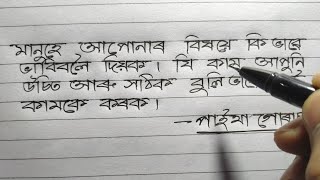 মানুহে আপোনাৰ বিষয়ে কি ভাবে
ভাবিবলৈ দিয়ক। যি কাম আপুনি
উচিত আৰু সঠিক বুলি
কামকে কৰক।